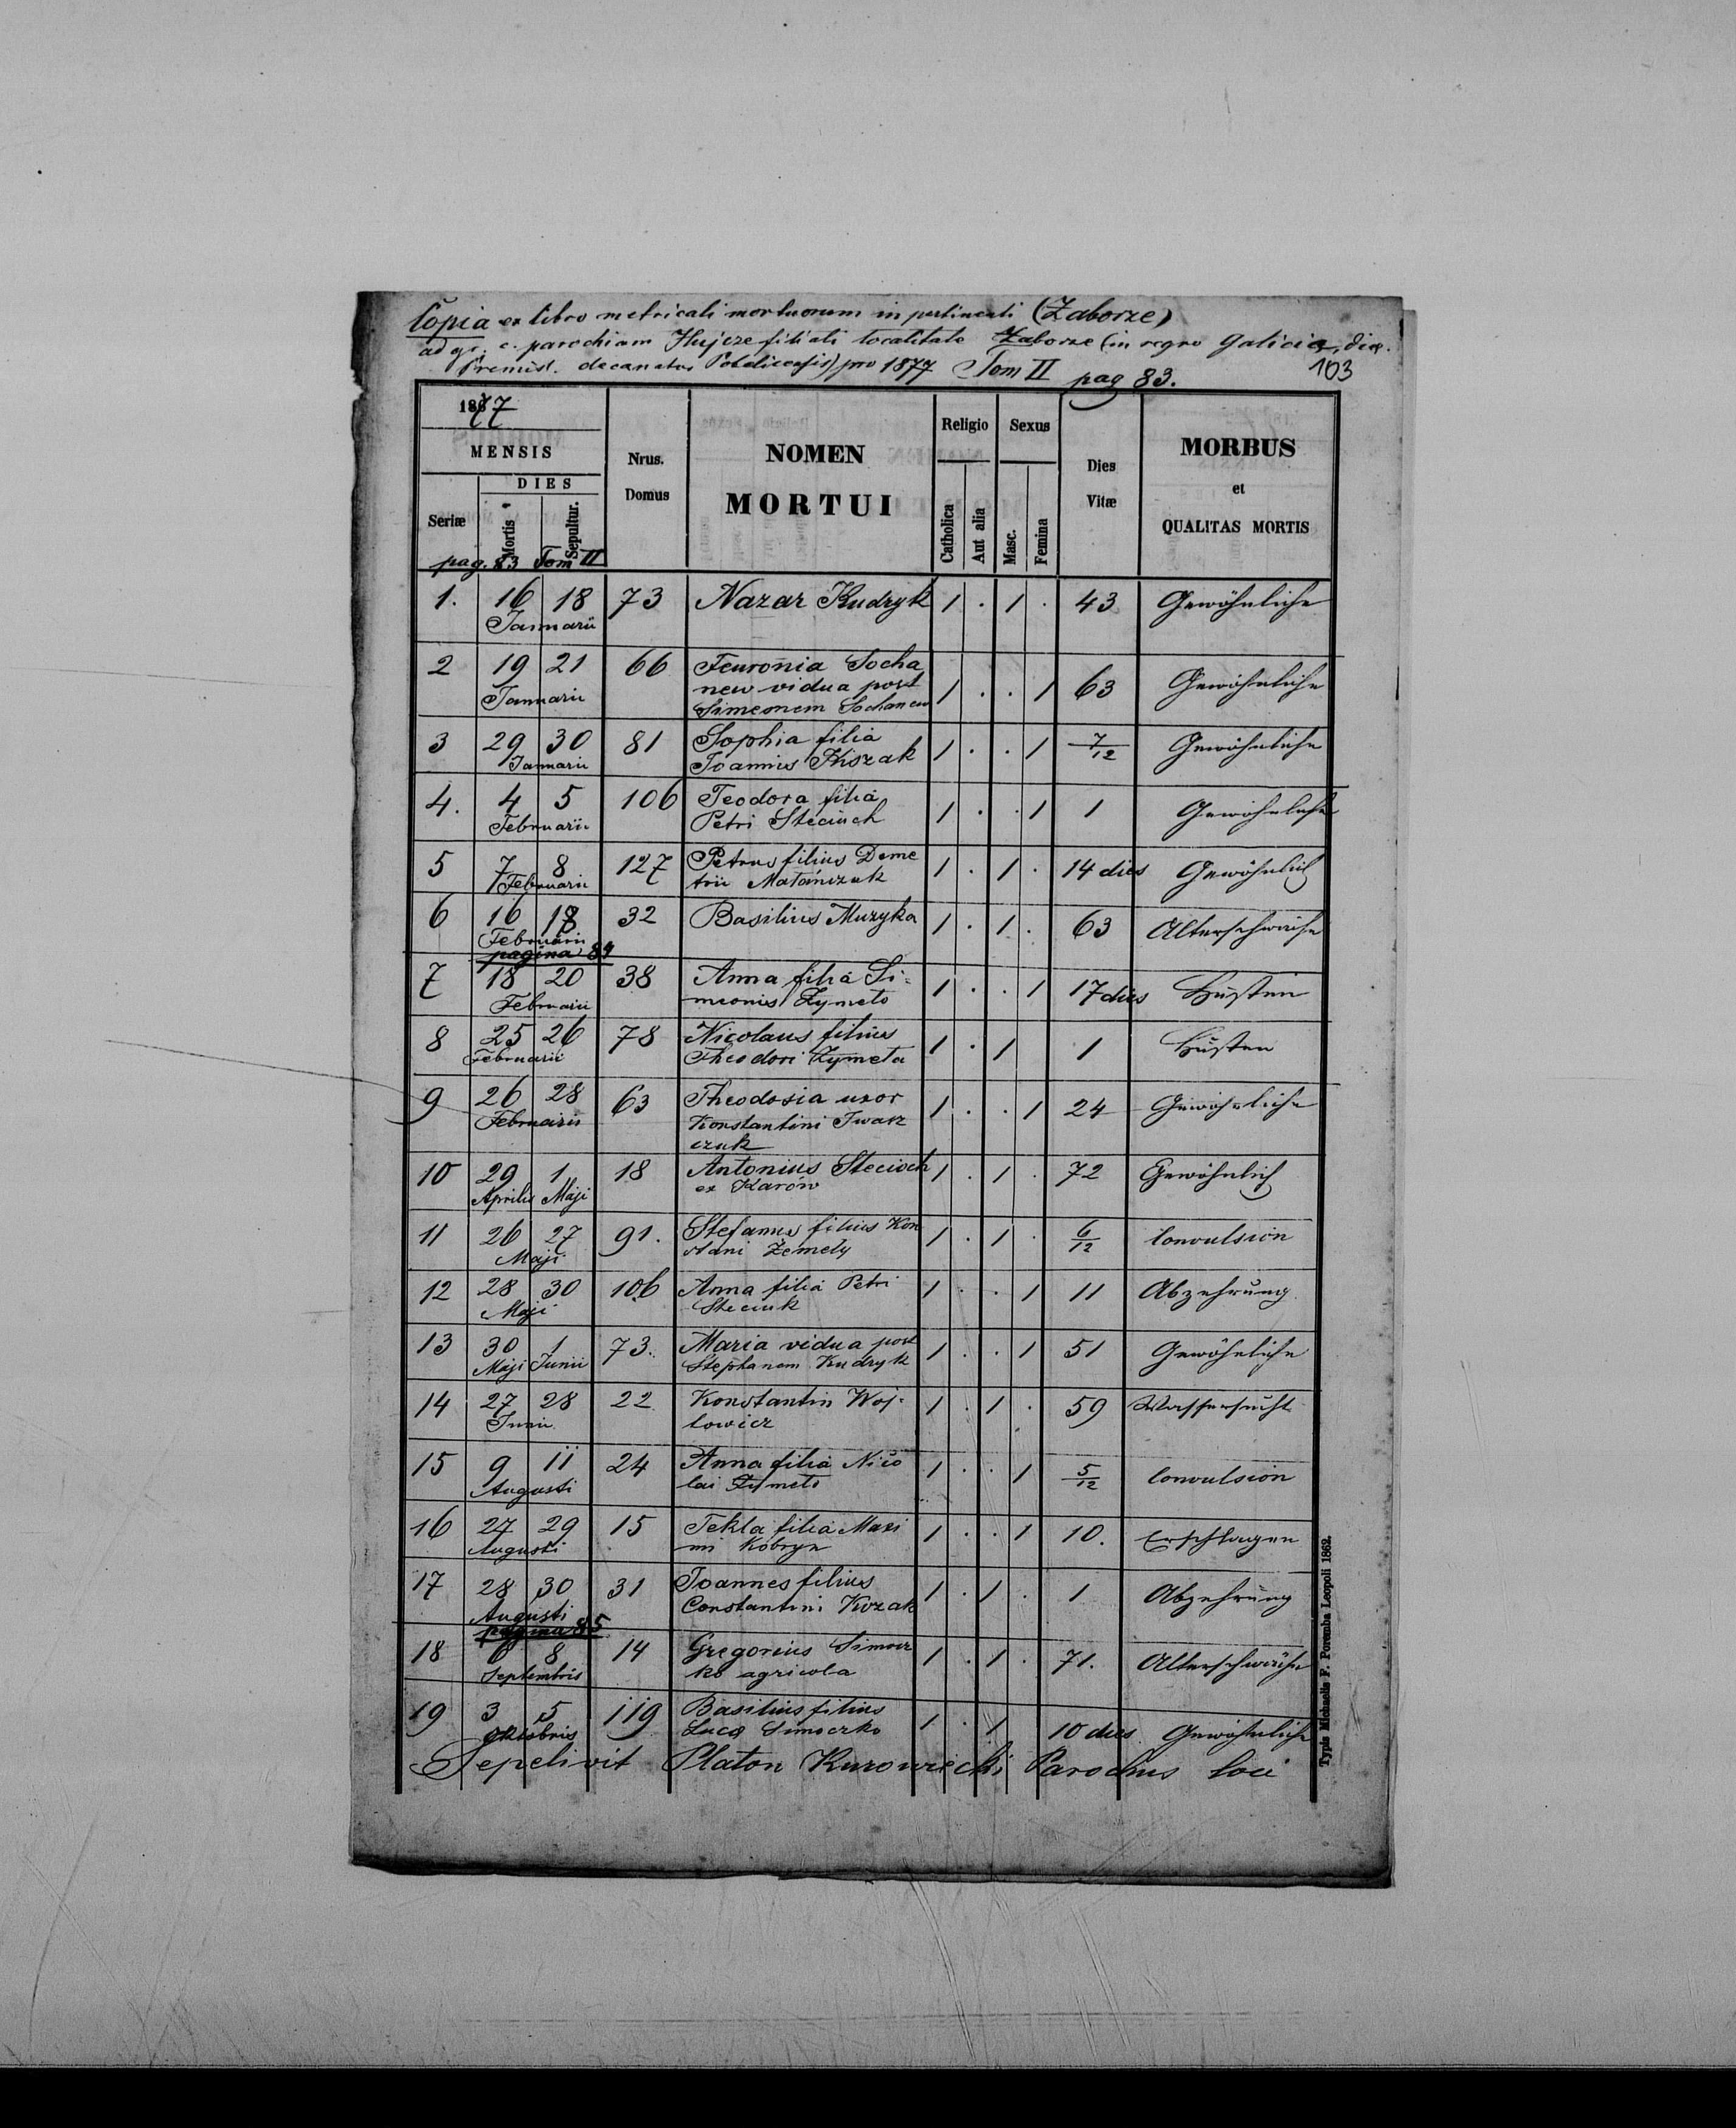 Copia ex libro metricali mortuorum in pertinenti (Zaborze)
ad gr. c. parochiam Hujcze filiati localitate Zaborze (in regno Galiciæ, diæ.
Premisl. decanatus Potelicensis) pro 1877 Tom II pag 83.
103
1877
MENSIS
DIES
Seriæ
Mortis
Sepultur.
Nrus.
Domus
NOMEN
MORTUI
Religio
Catholica
Aut alia
Sexus
Masc.
Femina
Dies
Vitæ
MORBUS
et
QUALITAS MORTIS
pag. 83 Tom II
1. 16 18 73 Nazar Kudryk 1 . 1 . 43 Gewöhnliche
Januarii
2 19 21 66 Feuronia Socha
Januarii new vidua post 1 . . 1 63 Gewöhnliche
Simeonem Sochanew
3 29 30 81 Sophia filia 1 . . 1 7/12 Gewöhnliche
Januarii Joannis Kiszak
4. 4 5 106 Teodora filia 1 . . 1 1 Gewöhnliche
Februarii Petri Steciuch
5 7 8 127 Petrus filius Deme 1 . 1 . 14 dies Gewöhnlich
Februarii trii Matańczuk
6 16 18 32 Basilius Muzyka 1 . 1 . 63 Altersschwäche
Februarii
pagina 84
7 18 20 38 Anna filia Si= 1 . . 1 17 dies Husten
Februarii meonis Zymeto
8 25 26 78 Nicolaus filius 1 . 1 1 Husten
Februarii Theodori Zymeta
9 26 28 63 Theodosia uxor 1 . . 1 24 Gewöhnliche
Februarii Konstantini Iwasz
czuk
10 29 1 18 Antonius Stecioch 1 . 1 . 72 Gewöhnlich
Aprilis Maji ex Karów
11 26 27 91. Stefanus filius Kon 1 . 1 . 6/12 Convulsion
Maji stani Zemety
12 28 30 106 Anna filia Petri 1 . . 1 11 Abzehrung
Maji Steciuk
13 30 1 73. Maria vidua post 1 . . 1 51 Gewöhnliche
Maji Junii Stephanem Kudryk
14 27 28 22 Konstantin Woj- 1 . 1 . 59 Wassersucht
Junii towicz
15 9 11 24 Anna filia Nico 1 . . 1 5/12 Convulsion
Augusti lai Zymeto
16 27 29 15 Tekla filia Maxi 1 . . 1 10. Erschlagen
Augusti mi Kobryn
17 28 30 31 Joannes filius 1 . 1 . 1 Abzehrung
Augusti Constantini Kozak
pagina 85
18 6 8 14 Gregorius Simocz 1 . 1 . 71. Altersschwäche
Septembris ko agricola
19 3 5 119 Basilius filius 1 . 1 10 dies Gewöhnliche
Oktobris Lucæ Simoczko
Sepelivit Platon Kurowiecki Parochus loci
Typis Michaelis F. Poremba Leopoli 1862.